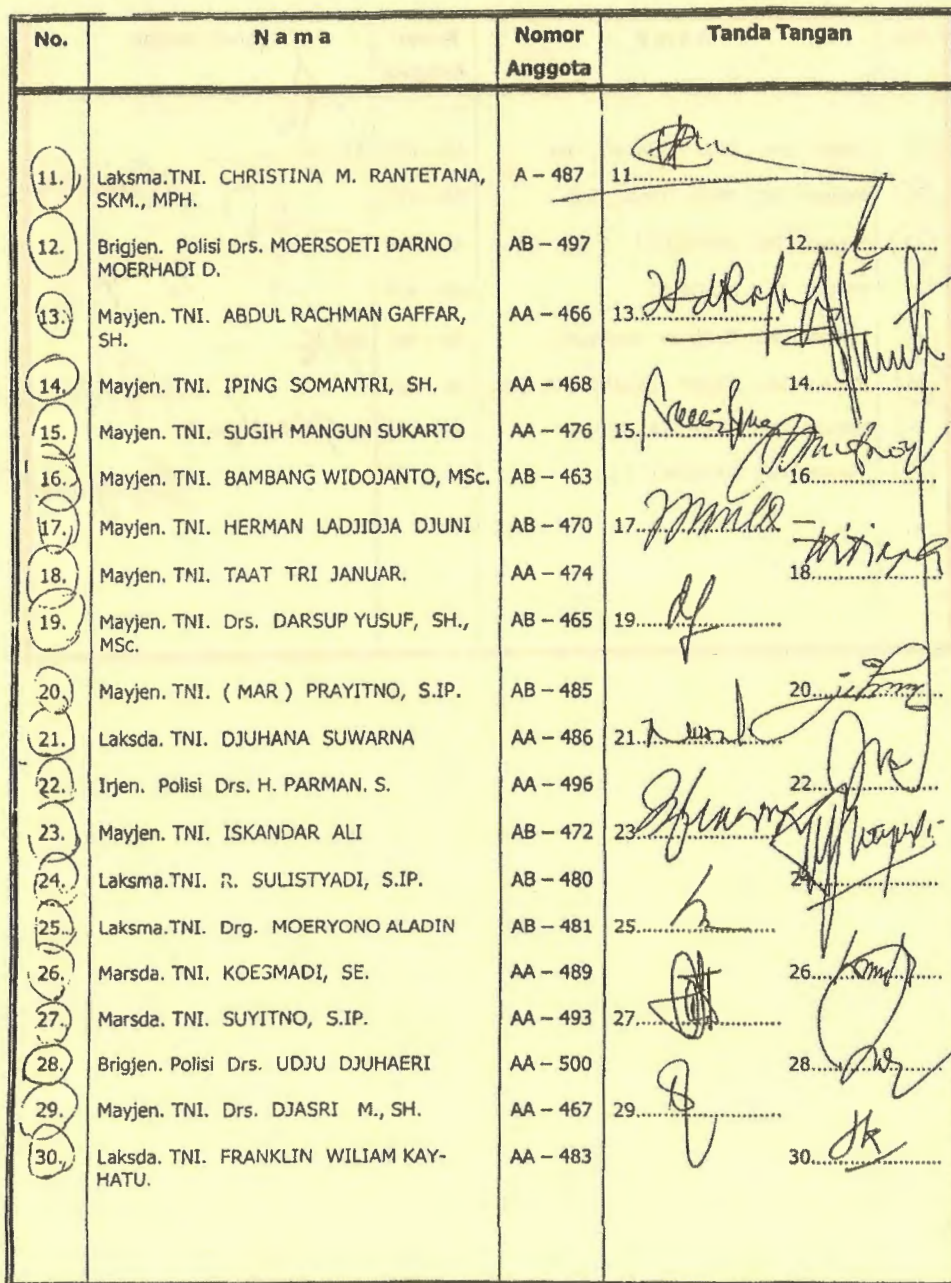 No. Nama Nomor Anggota Tanda Tangan
11. Laksma.TNI. CHRISTINA M. RANTETANA, A – 487 11
SKM., MPH.
12. Brigjen. Polisi Drs. MOERSOETI DARNO AB – 497 12
MOERHADI D.
13. Mayjen. TNI. ABDUL RACHMAN GAFFAR, AA – 466 13
SH.
14. Mayjen. TNI. IPING SOMANTRI, SH. AA – 468 14
15. Mayjen. TNI. SUGIH MANGUN SUKARTO AA – 476 15
16. Mayjen. TNI. BAMBANG WIDOJANTO, MSc. AB – 463 16
17. Mayjen. TNI. HERMAN LADJIDJA DJUNI AB – 470 17
18. Mayjen. TNI. TAAT TRI JANUAR. AA – 474 18
19. Mayjen. TNI. Drs. DARSUP YUSUF, SH., AB – 465 19
MSc.
20. Mayjen. TNI. ( MAR ) PRAYITNO, S.IP. AB – 485 20
21. Laksda. TNI. DJUHANA SUWARNA AA – 486 21
22. Irjen. Polisi Drs. H. PARMAN. S. AA – 496 22
23. Mayjen. TNI. ISKANDAR ALI AB – 472 23
24. Laksma.TNI. R. SULISTYADI, S.IP. AB – 480 24
25. Laksma.TNI. Drg. MOERYONO ALADIN AB – 481 25
26. Marsda. TNI. KOESMADI, SE. AA – 489 26
27. Marsda. TNI. SUYITNO, S.IP. AA – 493 27
28. Brigjen. Polisi Drs. UDJU DJUHAERI AA – 500 28
29. Mayjen. TNI. Drs. DJASRI M., SH. AA – 467 29
30. Laksda. TNI. FRANKLIN WILIAM KAY- AA – 483 30
HATU.